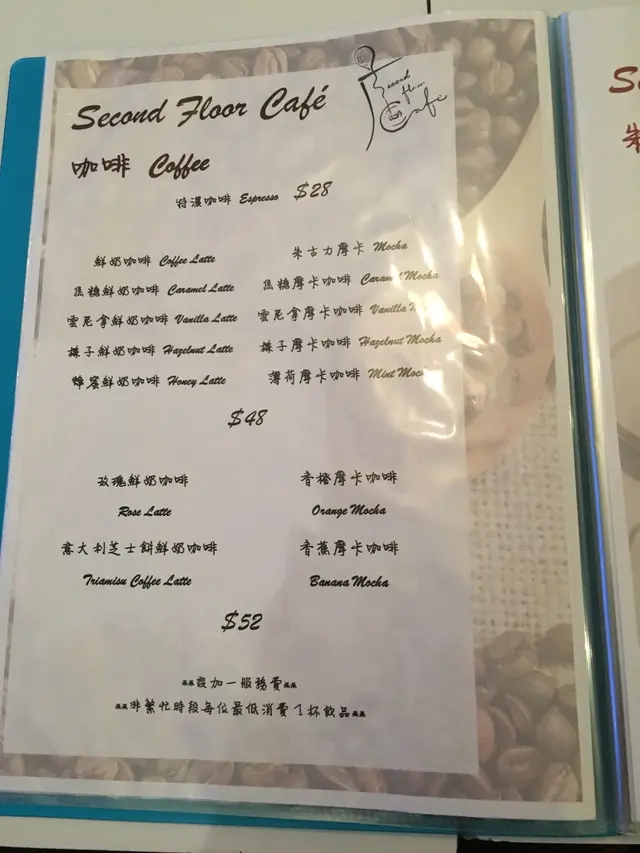 Second Floor Café
Second
floor
Café
咖啡 Coffee
特濃咖啡 Espresso $28
鮮奶咖啡 Coffee Latte
朱古力摩卡 Mocha
焦糖鮮奶咖啡 Caramel Latte
焦糖摩卡咖啡 Caramel Mocha
雲尼拿鮮奶咖啡 Vanilla Latte
雲尼拿摩卡咖啡 Vanilla
榛子鮮奶咖啡 Hazelnut Latte
榛子摩卡咖啡 Hazelnut Mocha
蜂蜜鮮奶咖啡 Honey Latte
薄荷摩卡咖啡 Mint
$48
玫瑰鮮奶咖啡
香橙摩卡咖啡
Rose Latte
Orange Mocha
意大利芝士餅鮮奶咖啡
香蕉摩卡咖啡
Triamisu Coffee Latte
Banana Mocha
$52
**設加一服務費**
**非繁忙時段每位最低消費1杯飲品**